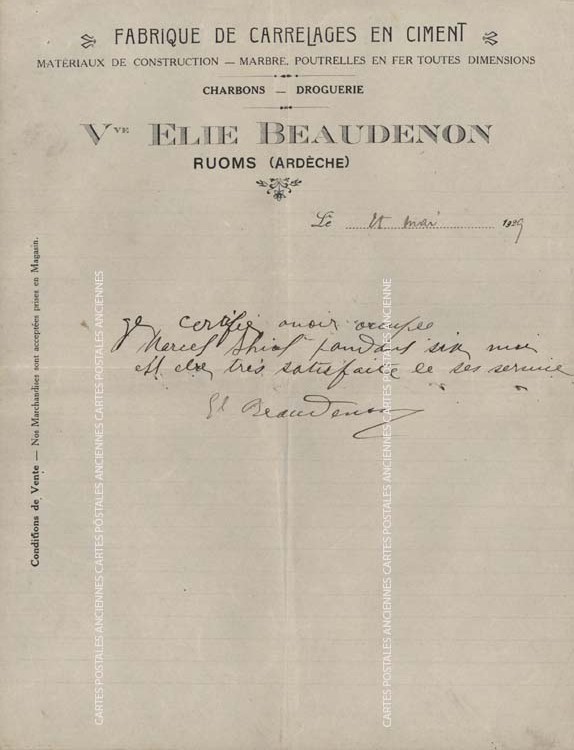 FABRIQUE DE CARRELAGES EN CIMENT
MATÉRIAUX DE CONSTRUCTION — MARBRE, POUTRELLES EN FER TOUTES DIMENSIONS
CHARBONS — DROGUERIE
Vve ELIE BEAUDENON
RUOMS (ARDÈCHE)
Le mai 1929
certifie avoir occupée
Marcel pandant six moi
et être très satisfaite de ses service
El Beaudenon
Conditions de Vente — Nos Marchandises sont acceptées prises en Magasin.
CARTES POSTALES ANCIENNES CARTES POSTALES ANCIENNES CARTES POSTALES ANCIENNES
CARTES POSTALES ANCIENNES CARTES POSTALES ANCIENNES CARTES POSTALES ANCIENNES